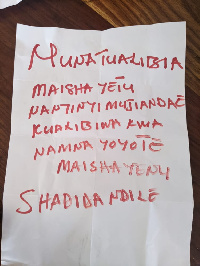 MUNATUALIBIA
MAISHA YETU
NANTINYI MUJIANDAE
KUALIBIWA KWA
NAMNA YOYOTE
MAISHA YENU
SHADIDA NDILE